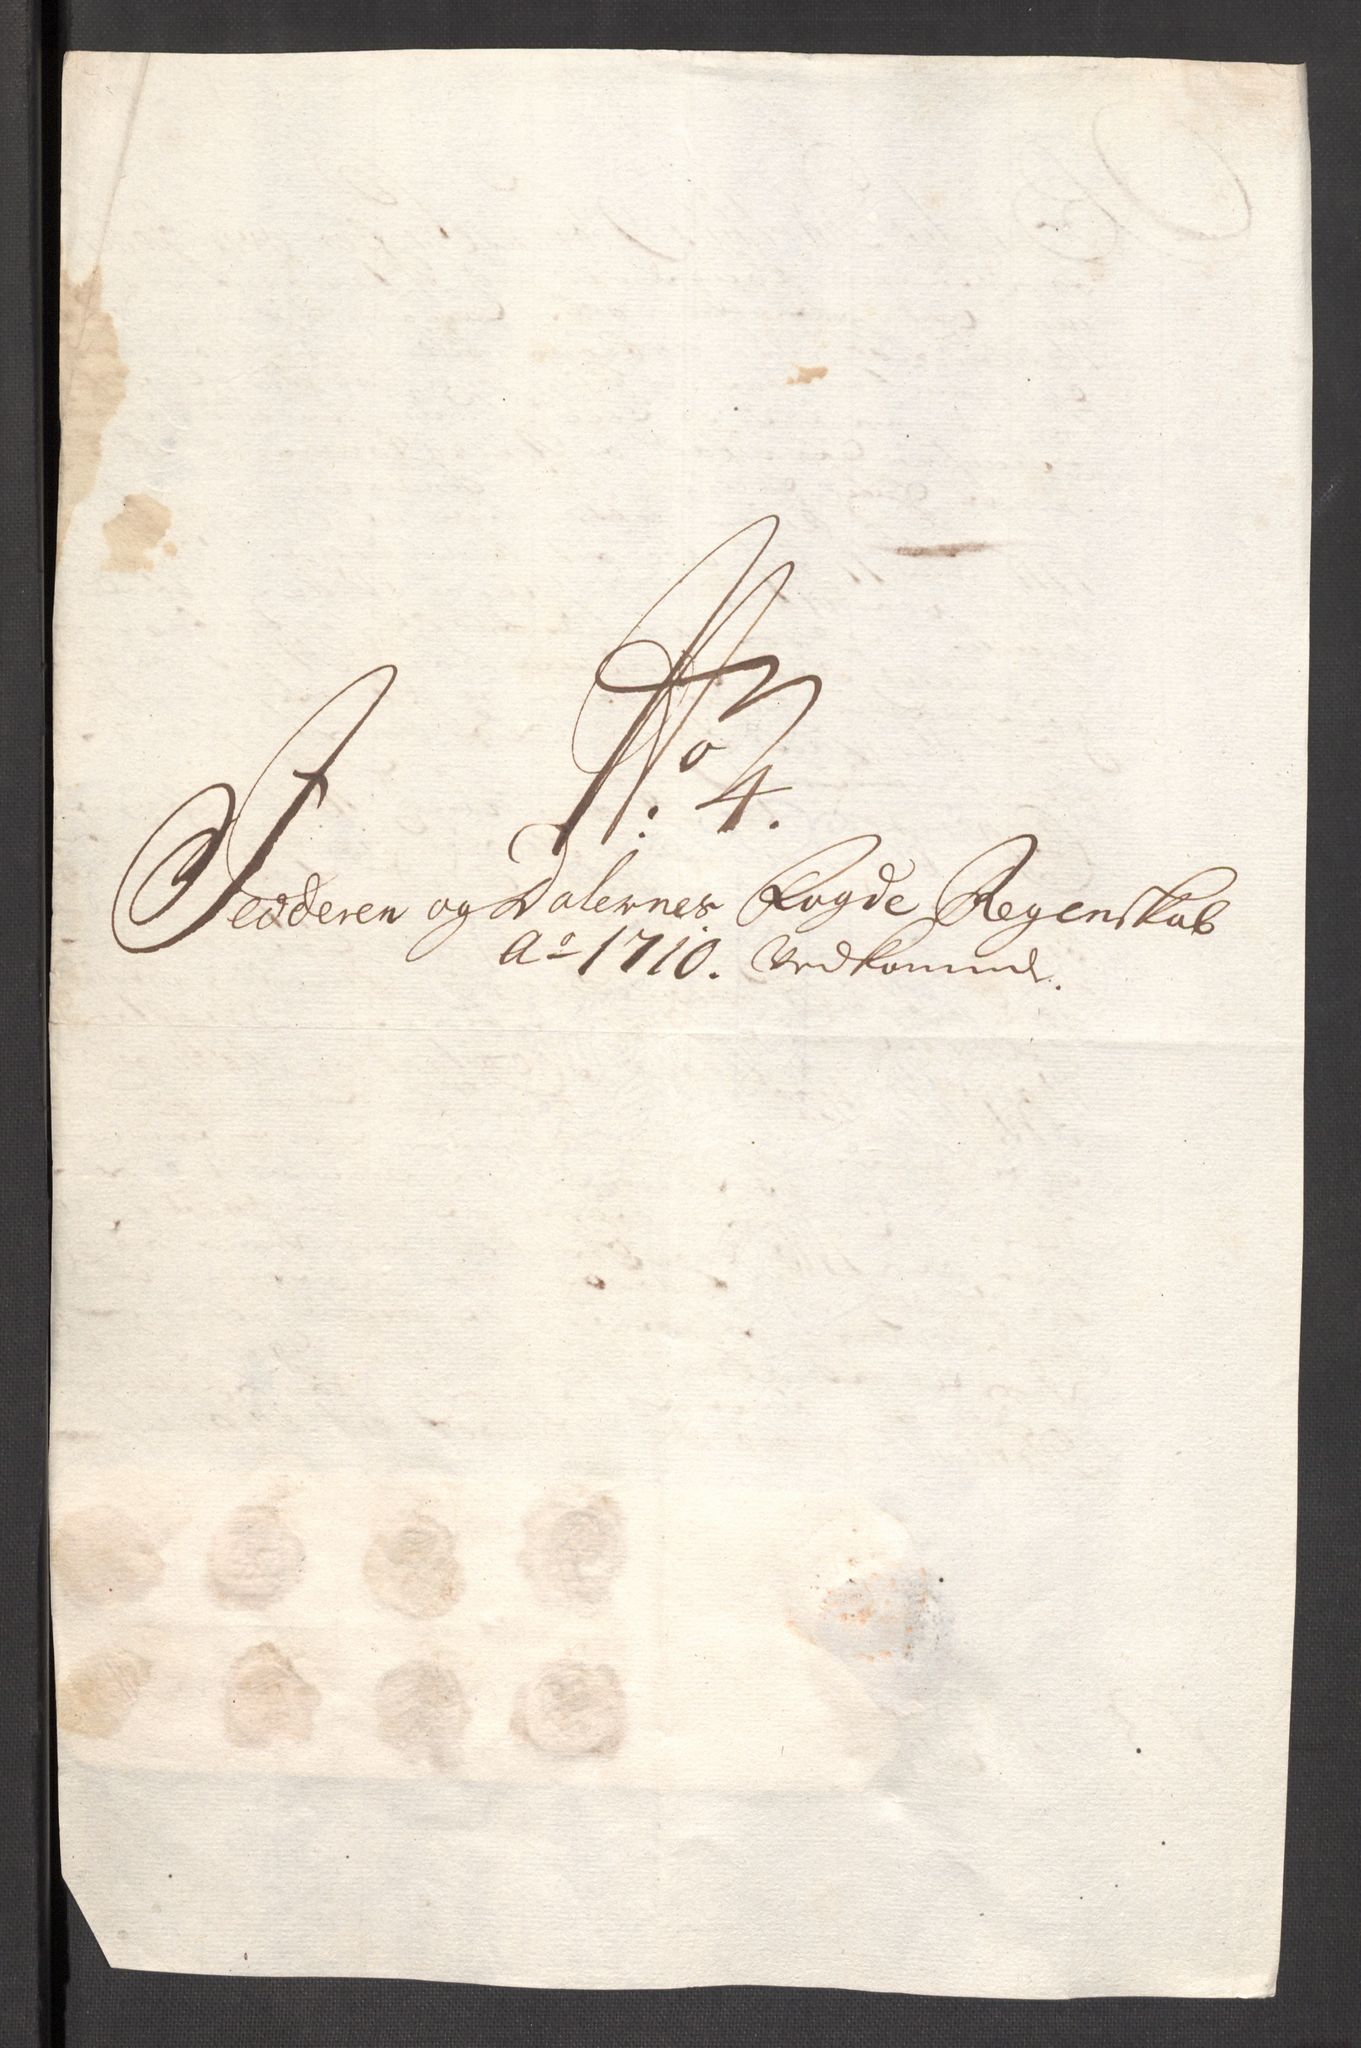 No: 4.
Jedderen og Dalernes Fogde Regenskab
Ao 1710. Vedkommd.